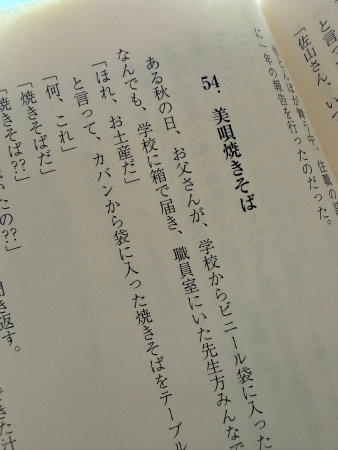 「佐山さん、い
に一年の報告を行ったのだった。
54. 美唄焼きそば
ある秋の日、お父さんが、学校からビニール袋に入った
なんでも、学校に箱で届き、職員室にいた先生方みんなで
「ほれ、お土産だ」
と言って、カバンから袋に入った焼きそばをテーブル
「何、これ」
「焼きそばだ」
「焼きそば??」
たの??」
き返す。